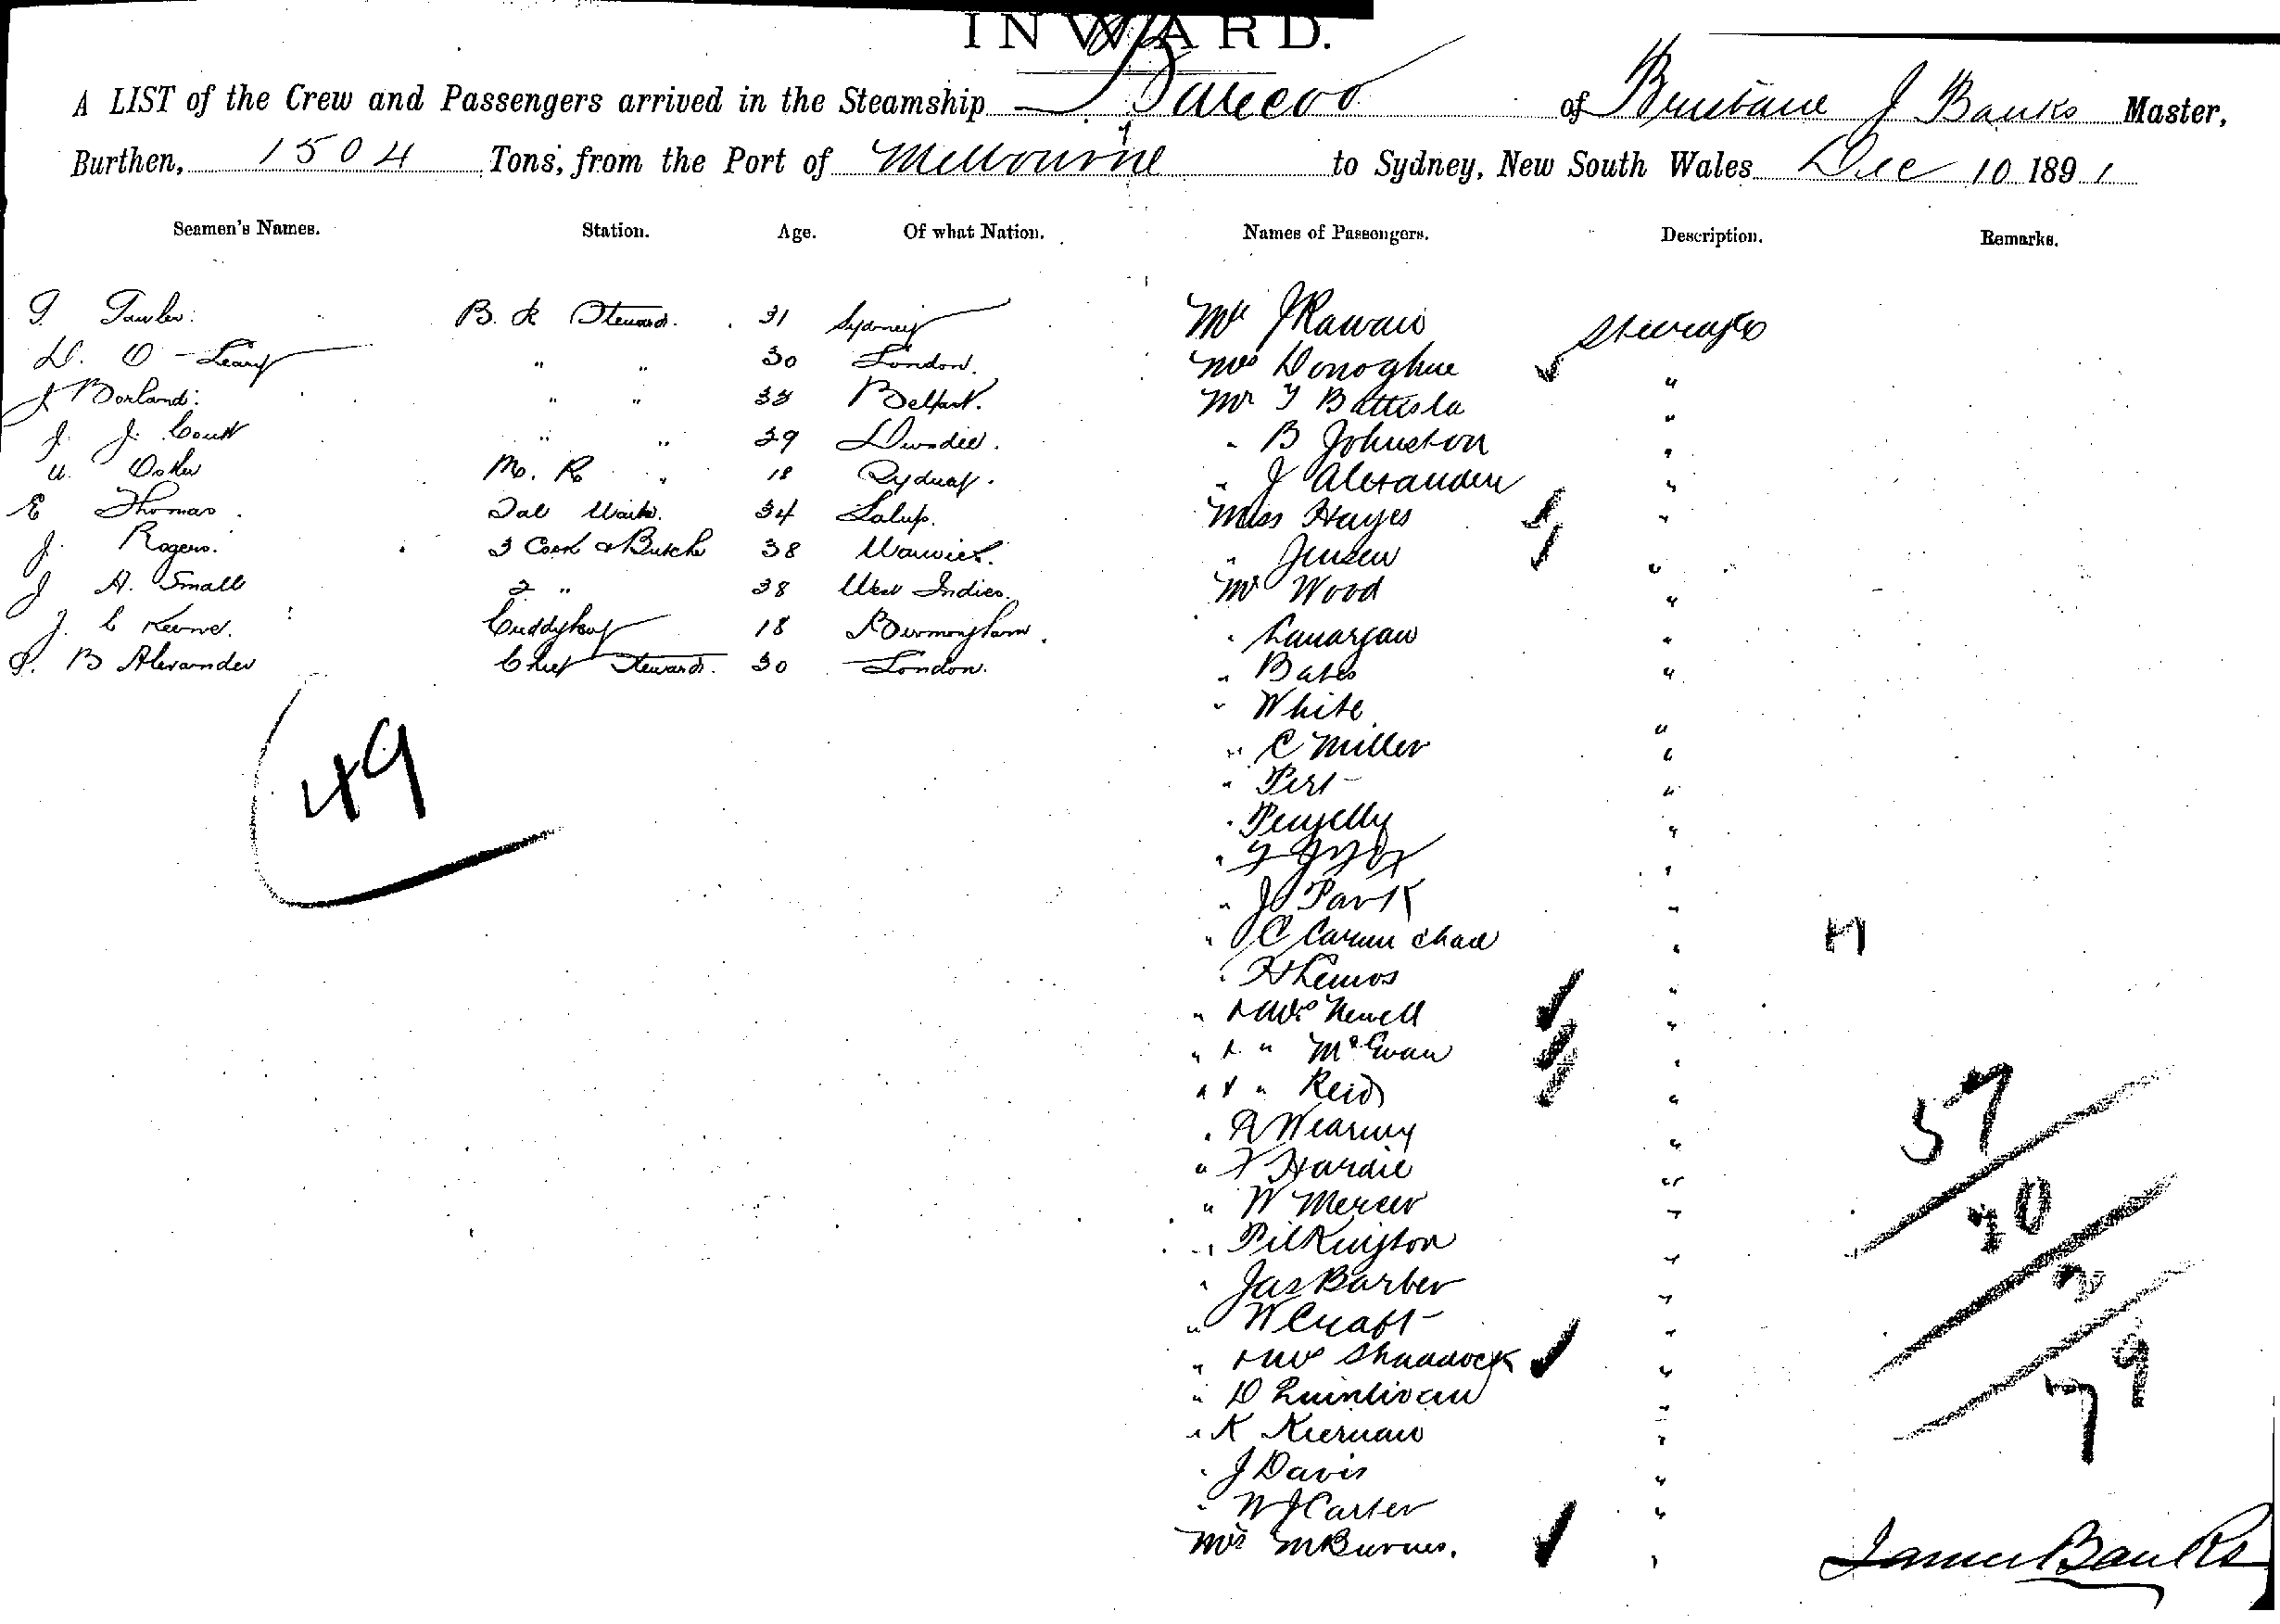 INWARD.
A LIST of the Crew and Passengers arrived in the Steamship Barcoo of Brisbane J Banks Master,
Burthen, 1504 Tons, from the Port of Melbourne to Sydney, New South Wales Dec 10 1891
Seamen's Names. Station. Age. Of what Nation. Names of Passengers. Description. Remarks.
B. R Steward. 31 Sydney
D. O-Leary " " 30 London.
J Borland. " " 33 Belfast.
J. J. " " 29 Dundee.
M. R " 18 Sydney.
E Thomas. 34
J. Rogers. 3 Cook & Butcher 38 Warwick.
J A. Small 2 " 38 West Indies.
J. C 18 Birmingham.
B Alexander Chief Steward. 30 London.
49
Mr J Steerage
Mrs Donoghue "
Mr Battista "
" B Johnston "
" J Alexander "
Miss Hayes "
" Jensen "
Mr Wood "
" "
" Bates "
" White "
" C Miller "
" "
" Pengelly "
" "
" J Park "
" C "
" H Lemos "
" & Mrs Newell "
" & " McEwan "
" & " Reid "
" "
" F Hardie "
" W Mercer "
" Pilkington "
" Jas Barber "
" W Craft "
" & Mrs Shaddock "
" D Quinlivan "
" K Kiernan "
" J Davis "
" W J Carter "
Mrs M Burnes. "
57
10
79
James Banks